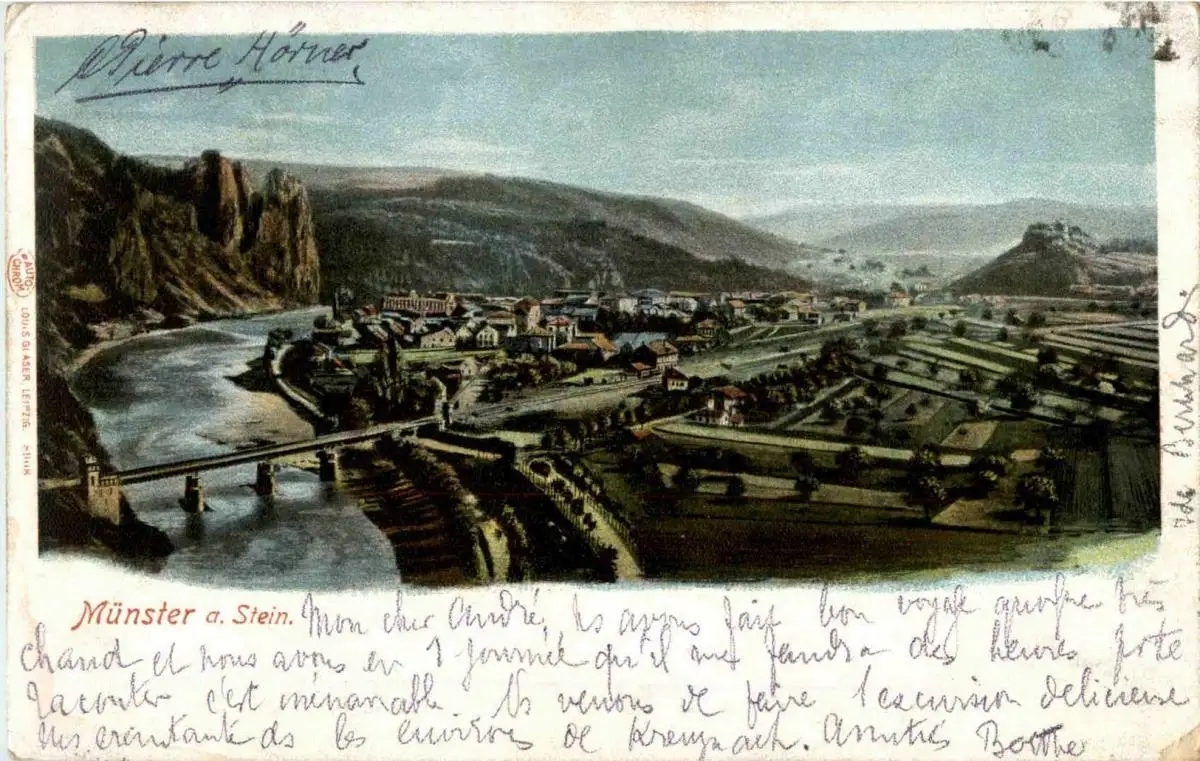 Pierre Hörner
AUTO CHROM LOUIS GLASER, LEIPZIG
Münster a. Stein.
Mon cher André, ns avons fait bon voyage quoique très
chaud et nous avons eu 1 journée qu'il me faudra des heures pr te
raconter c'est inénarrable. Ns venons de faire 1 excursion délicieuse
ds les environs de Kreuznach. Amitiés
Bernhard.